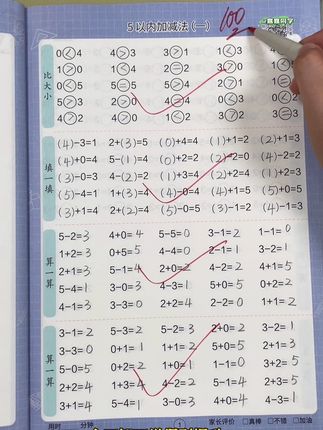 100
5以内加减法(一)
比大小
0<4 4>3 3>1 1<3 3=3
1>0 1<4 2=2 3>0
5>3 2<4
填一填
(4)-3=1 2+(3)=5 (0)+4=4 (1)+1=2 (2)+1=3
(4)+0=4 5-(1)=4 (2)+2=4 (2)-2=0 (4)-2=2
(3)-0=3 4-(2)=2 (4)-2=2 (2)+0=2 (1)+2=3
(5)-4=1 1+(3)=4 (4)-0=4 (4)+1=5 (5)+0=5
(3)+1=4 2+(2)=4 (5)-0=5 (3)-1=2 (4)-1=3
算一算
5-2=3 4+0=4 5-5=0 3-1=2 1-1=0
1+2=3 0+5=5 4-4=0 2-1=1 3-2=1
2+1=3 5-1=4 2+0=2 4-2=2 4+1=5
5-4=1 3-0=3 4-3=1 5+0=5 0+2=2
4-1=3 0+3=3 2+2=4 2-2=0 1+1=2
算一算
3-1=2 5-3=2 5-2=3 2+0=2 3-2=1
3-3=0 0+1=1 1+1=2 5+0=5 2+1=3
5-0=5 0+2=2 1+0=1 1-1=0 3+2=5
2+2=4 1+3=4 4-2=2 5-4=1 2+3=5
3+1=4 5-4=1 3-0=3 4+0=4 4-3=1
用时 分钟 1 家长评价 □真棒 □不错 □加油